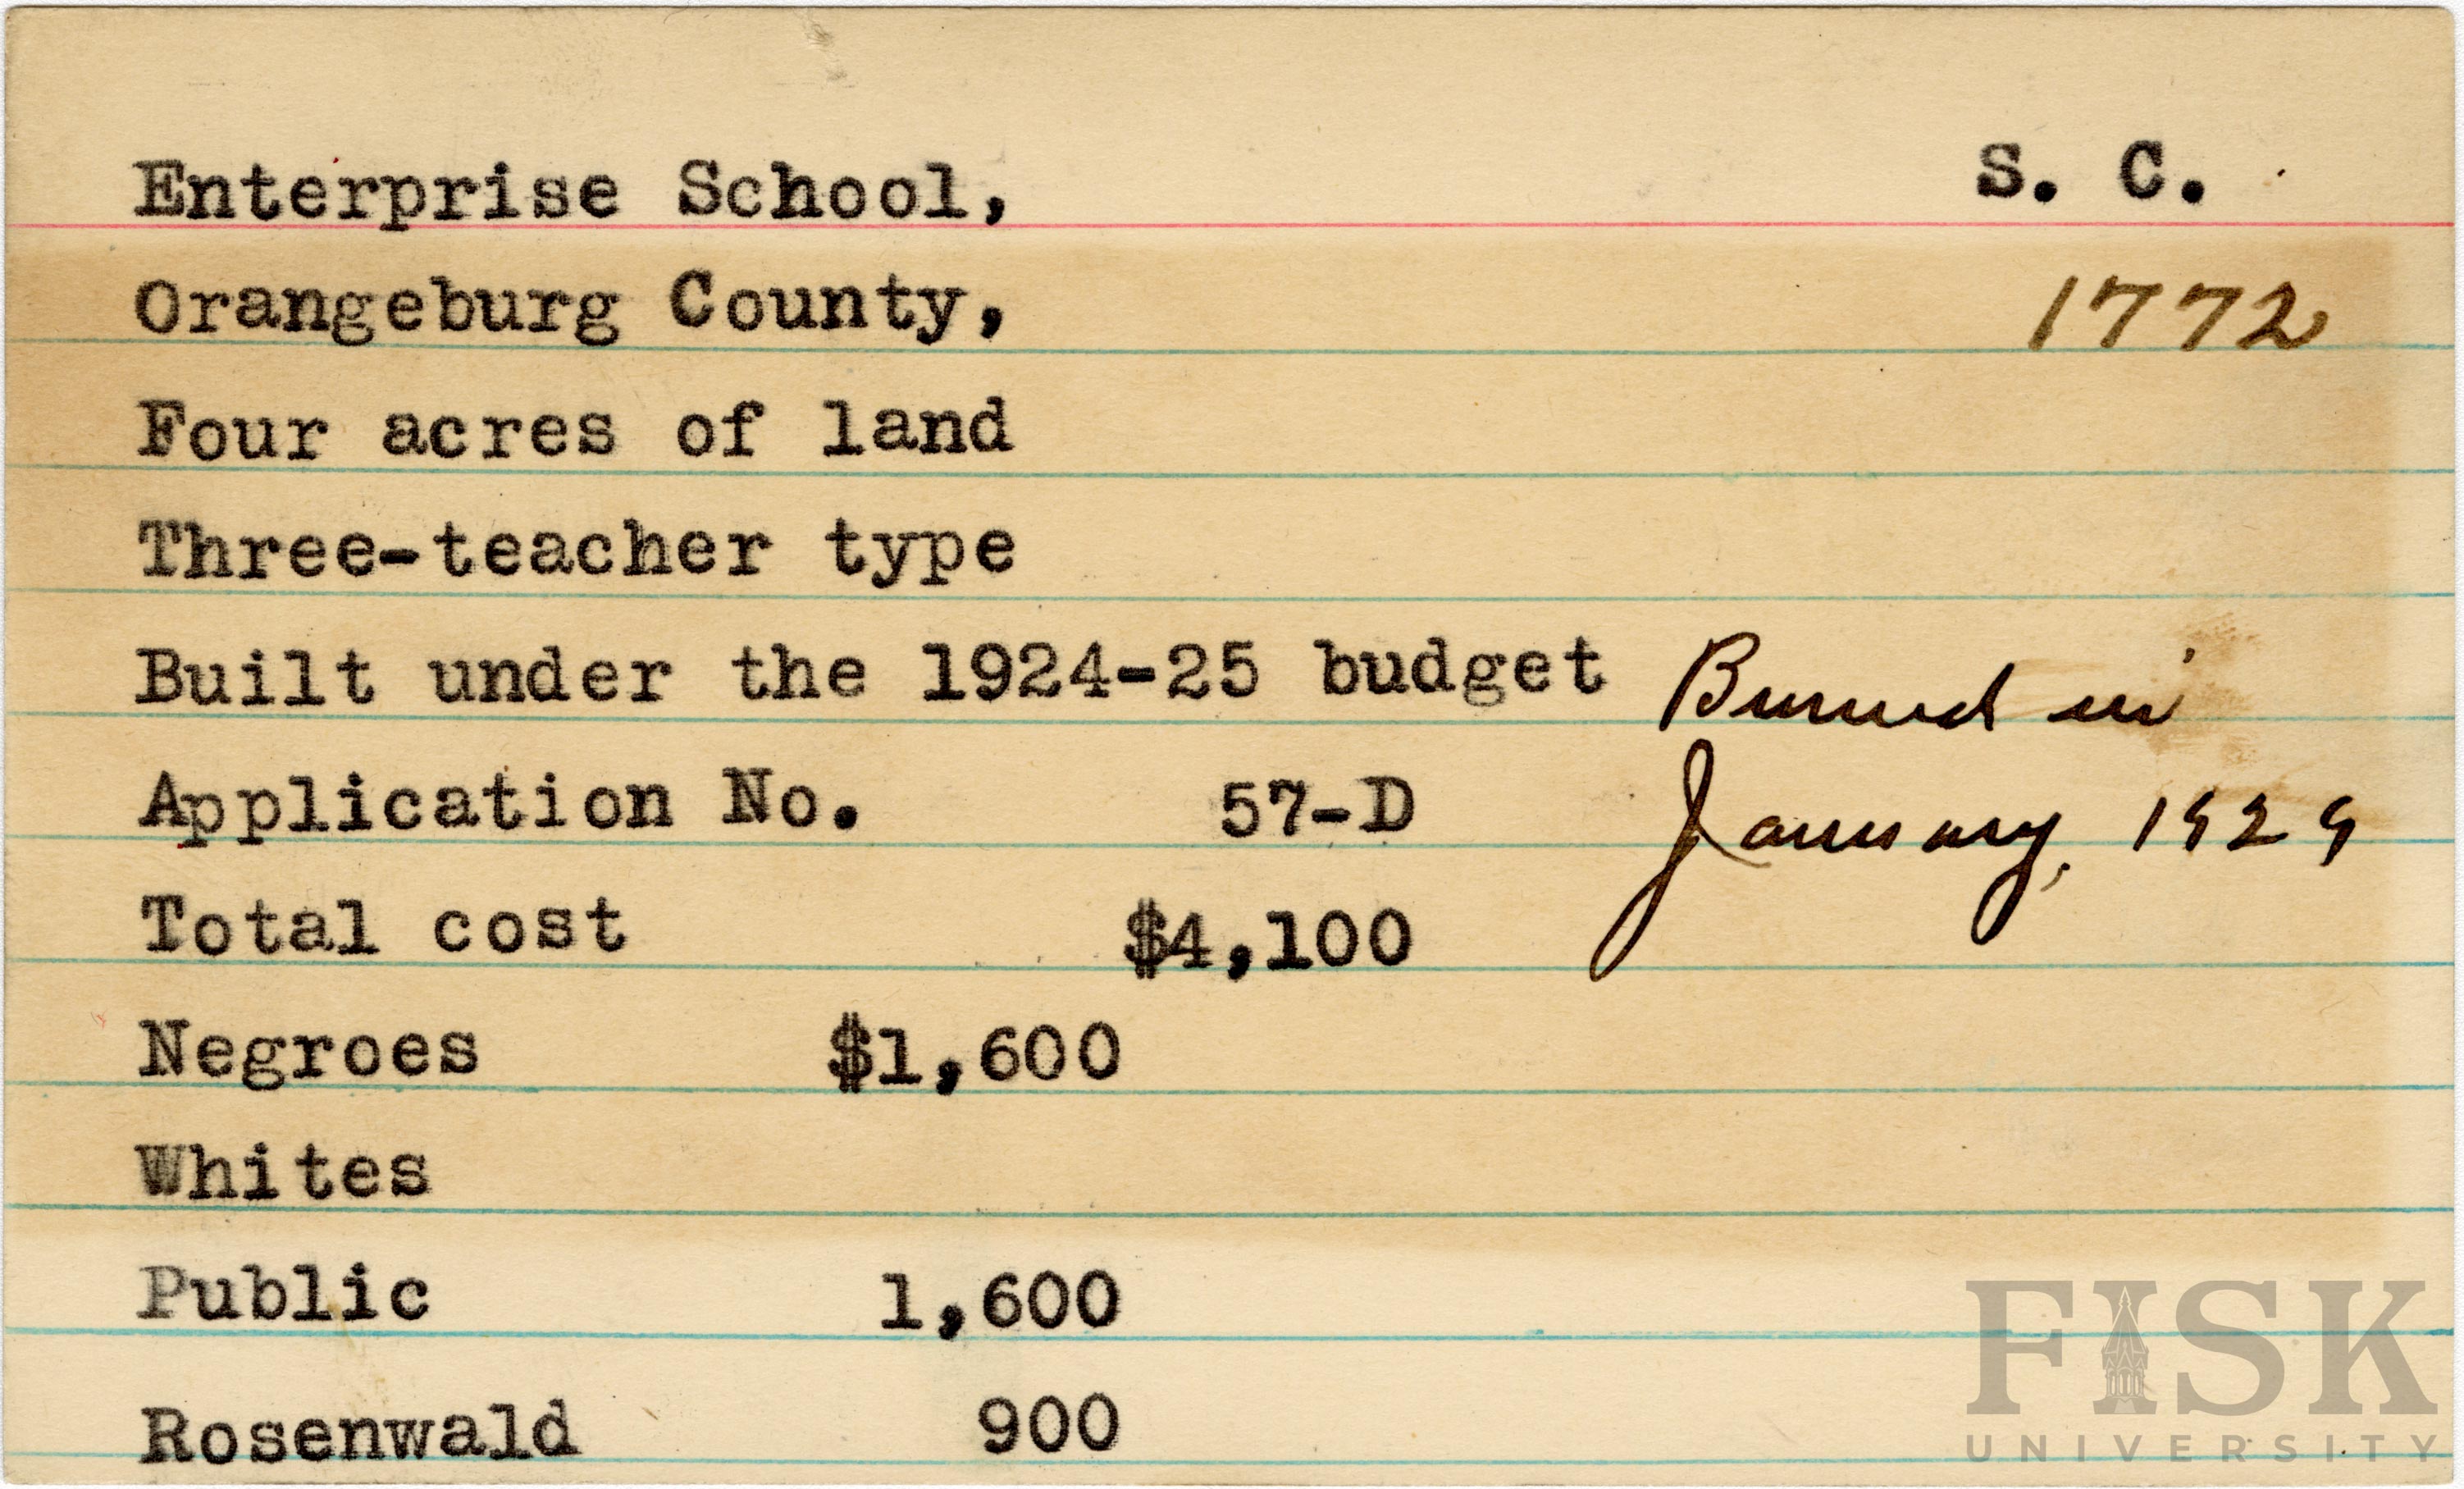 Enterprise School, S. C.
Orangeburg County, 1772
Four acres of land
Three-teacher type
Built under the 1924-25 budget Burned in
Application No. 57-D January, 1929
Total cost $4,100
Negroes $1,600
Whites
Public 1,600
Rosenwald 900
FISK
UNIVERSITY